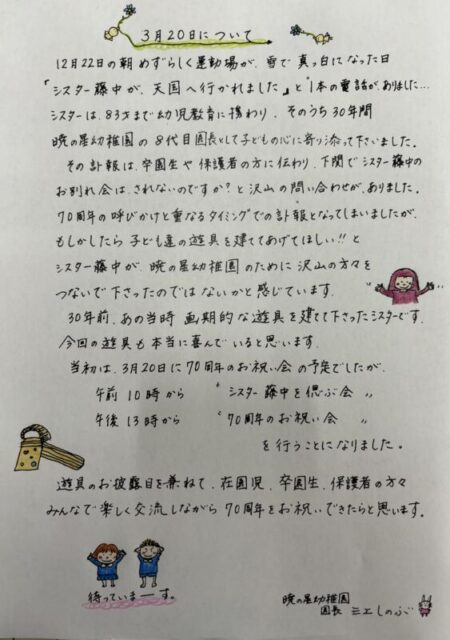 3月20日について
12月22日の朝 めずらしく運動場が、雪で真っ白になった日
「シスター藤中が、天国へ行かれました」と1本の電話が、ありました…
シスターは、83才まで幼児教育に携わり、そのうち30年間
暁の星幼稚園の8代目園長として子どもの心に寄り添って下さいました。
その訃報は、卒園生や保護者の方に伝わり、下関でシスター藤中の
お別れ会は、されないのですか?と沢山の問い合わせが、ありました。
70周年の呼びかけと重なるタイミングでの訃報となってしまいましたが、
もしかしたら子ども達の遊具を建ててあげてほしい!!と
シスター藤中が、暁の星幼稚園のために沢山の方々を
つないで下さったのではないかと感じています。
30年前、あの当時 画期的な遊具を建てて下さったシスターです。
今回の遊具も本当に喜んでいると思います。
当初は、3月20日に70周年のお祝い会の予定でしたが、
午前10時から 〝シスター藤中を偲ぶ会〟
午後13時から 〝70周年のお祝い会〟
を行うことになりました。
遊具のお披露目を兼ねて、在園児、卒園生、保護者の方々
みんなで楽しく交流しながら70周年をお祝いできたらと思います。
待っていまーす。
暁の星幼稚園
園長 三エしのぶ